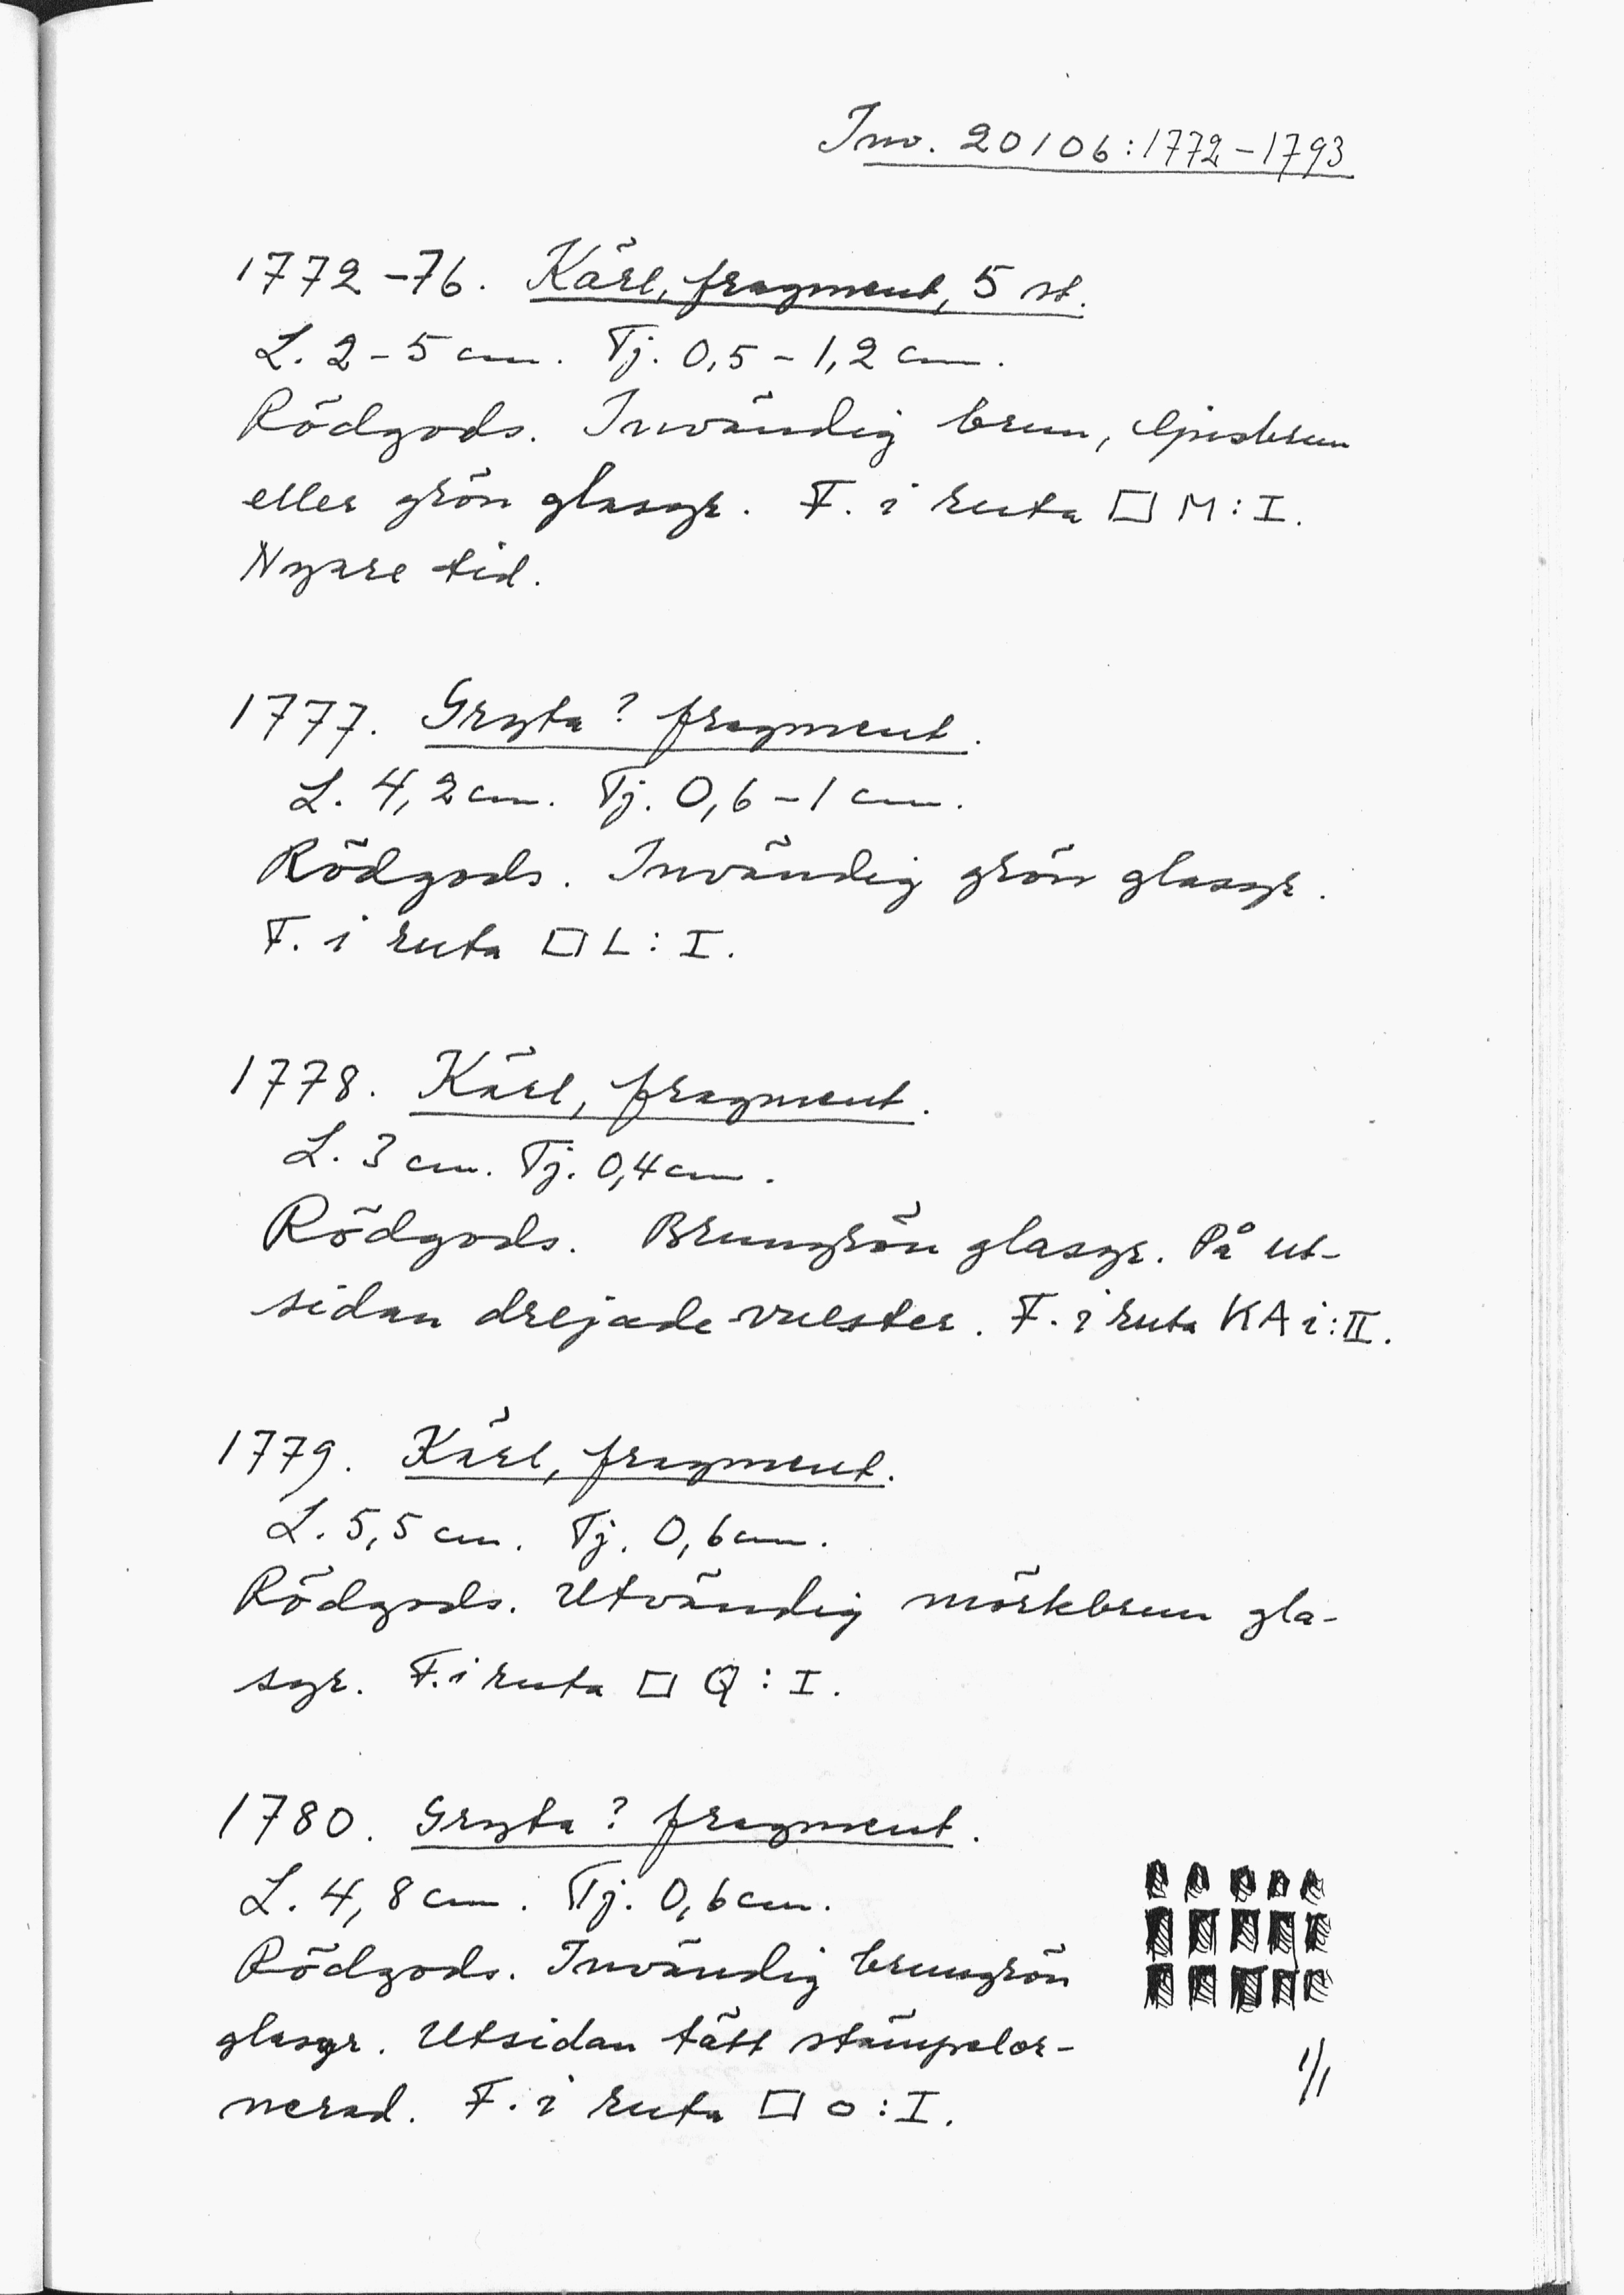 Inv. 20106:1772-1793
1772-76. Kärl, fragment, 5 st.
L. 2-5 cm. Tj. 0,5-1,2 cm.
Rödgods. Invändig brun, ljusbrun
eller grön glasyr. F. i ruta □ M:I.
Nyare tid.
1777. Gryta? fragment.
L. 4,2 cm. Tj. 0,6-1 cm.
Rödgods. Invändig grön glasyr.
F. i ruta □ L:I.
1778. Kärl, fragment.
L. 3 cm. Tj. 0,4 cm.
Rödgods. Brungrön glasyr. På ut-
sidan drejade vulster. F. i ruta KA i:II.
1779. Kärl, fragment.
L. 5,5 cm. Tj. 0,6 cm.
Rödgods. Utvändig mörkbrun gla-
syr. F. i ruta □ Q:I.
1780. Gryta? fragment.
L. 4,8 cm. Tj. 0,6 cm.
Rödgods. Invändig brungrön
glasyr. Utsidan tätt stämpelor-
nerad. F. i ruta □ O:I.
1/1